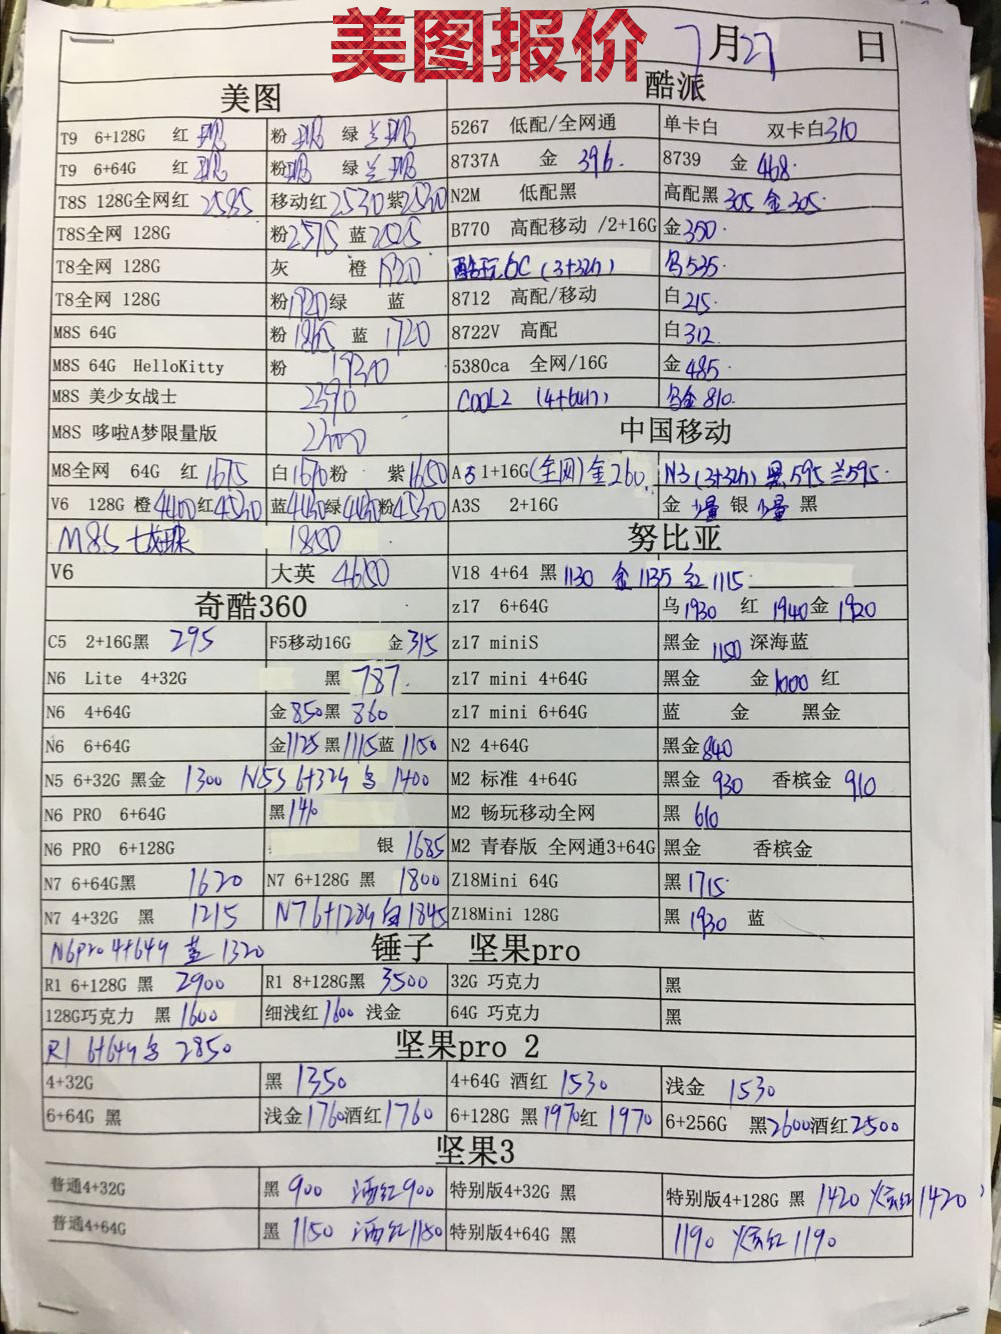 美图报价
7月27日
美图 酷派
T9 6+128G 红 现 粉 现 绿 兰现 5267 低配/全网通 单卡白 双卡白310
T9 6+64G 红 现 粉现 绿 兰现 8737A 金 396. 8739 金 468.
T8S 128G全网红 2585 移动红2530紫2530 N2M 低配黑 高配黑 305 金 305.
T8S全网 128G 粉2575 蓝2525 B770 高配移动 /2+16G 金350.
T8全网 128G 灰 橙 1920 酷玩6C (3+32G) 535.
T8全网 128G 粉1920绿 蓝 8712 高配/移动 白 215.
M8S 64G 粉 1865 蓝 1720 8722V 高配 白 312.
M8S 64G HelloKitty 粉 1930 5380ca 全网/16G 金 485.
M8S 美少女战士 2390 COOL2 (4+64G) 金 810.
M8S 哆啦A梦限量版 中国移动
M8全网 64G 红 1675 白1670粉 紫1650 A5 1+16G(全网)金260. N3 (3+32G) 黑595 兰595.
V6 128G 橙4400红4530 蓝4430绿4430粉4530 A3S 2+16G 金 少量 银 少量 黑
M8S 七龙珠 1850 努比亚
V6 大英 4650 V18 4+64 黑 1130 金 1135 红 1115.
奇酷360 z17 6+64G 乌1930 红 1940金 1920
C5 2+16G黑 295 F5移动16G 金315 z17 miniS 黑金 1150 深海蓝
N6 Lite 4+32G 黑 787. z17 mini 4+64G 黑金 金1000 红
N6 4+64G 金850黑 860 z17 mini 6+64G 蓝 金 黑金
N6 6+64G 金1125黑1115蓝1150 N2 4+64G 黑金840
N5 6+32G 黑金 1300 N5S 6+32G 1400 M2 标准 4+64G 黑金 930 香槟金 910
N6 PRO 6+64G 黑 M2 畅玩移动全网 黑 610
N6 PRO 6+128G 银 1685 M2 青春版 全网通3+64G 黑金 香槟金
N7 6+64G黑 1620 N7 6+128G 黑 1800 Z18Mini 64G 黑1715.
N7 4+32G 黑 1215 N7 6+128G 白1845 Z18Mini 128G 黑 1930 蓝
N6pro 4+64G 蓝 1320 锤子 坚果pro
R1 6+128G 黑 2900 R1 8+128G黑 3500 32G 巧克力 黑
128G巧克力 黑 1600 细浅红1600 浅金 64G 巧克力 黑
R1 6+64G 2850 坚果pro 2
4+32G 黑 1350 4+64G 酒红 1530 浅金 1530
6+64G 黑 浅金 1760酒红1760 6+128G 黑 1970红 1970 6+256G 黑2600酒红2500
坚果3
普通4+32G 黑 900 酒红900 特别版4+32G 黑 特别版4+128G 黑 1420 炫红1420
普通4+64G 黑 1150 酒红1150 特别版4+64G 黑 1190 炫红1190